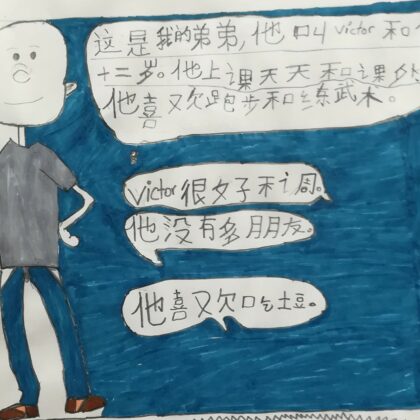 这是我的弟弟,他叫 victor 和
十二岁。他上课天天和课外
他喜欢跑步和练武术。
victor很好和调。
他没有多朋友。
他喜欢吃土豆。